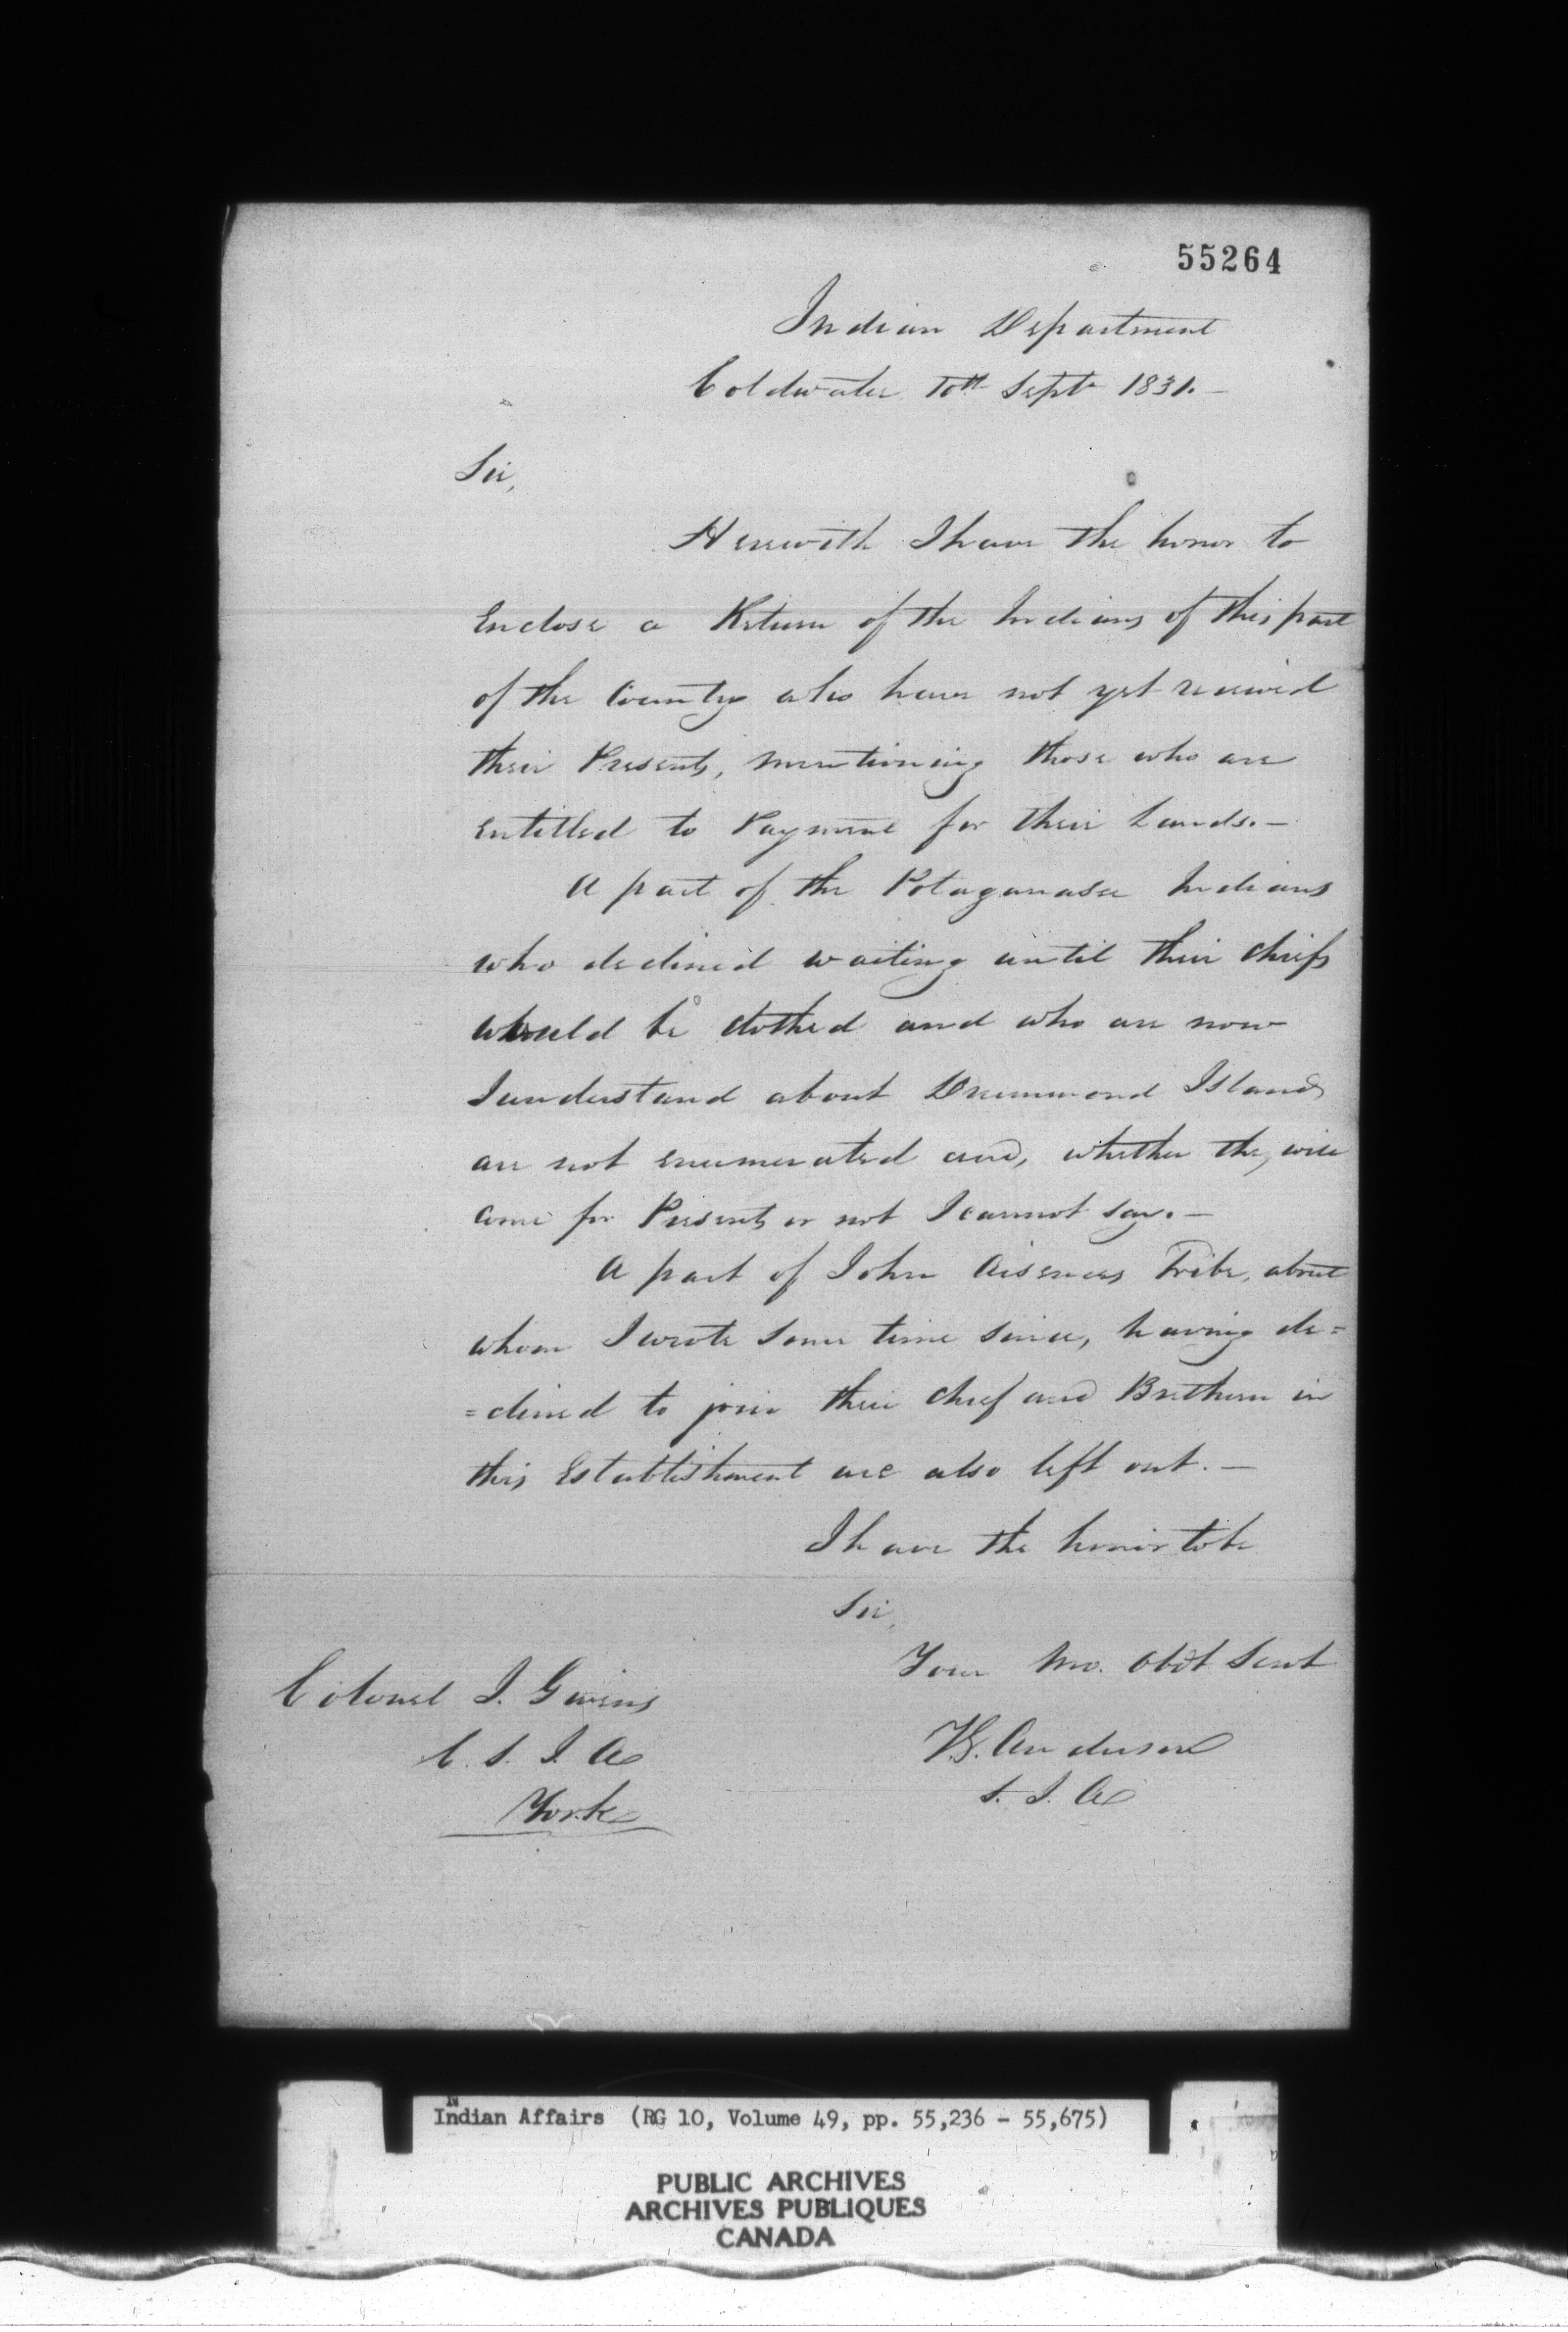 55264
Indian Department
Coldwater 10th Sept 1831.—
Sir,
Herewith I have the honor to
Enclose a Return of the Indians of this part
of the Country who have not yet received
their Presents, mentioning those who are
entitled to Payment for their Lands.—
A part of the Potaganasee Indians
who declined waiting until their chiefs
would be clothed and who are now
I understand about Drummond Island
are not enumerated and, whether they will
come for Presents or not I cannot say.—
A part of John Aisences Tribe, about
whom I wrote some time since, having de=
=clined to join their Chief and Brethern in
this Establishment are also left out.—
I have the honor to be
Sir,
Your Mo. Obdt Servt
Colonel J. Givins
C. S. I. A
York
T. G. Anderson
S. I. A
Indian Affairs (RG 10, Volume 49, pp. 55,236 - 55,675)
PUBLIC ARCHIVES
ARCHIVES PUBLIQUES
CANADA